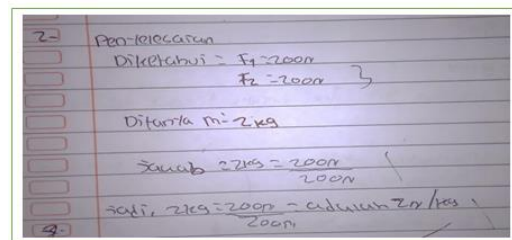 2- Penyelesaian
Diketahui = F1 = 200N
F2 = 200N }
Ditanya m = 2kg
Jawab = 2kg = 200N
200N
Jadi, 2kg = 200N = adalah 2N/kg
200N